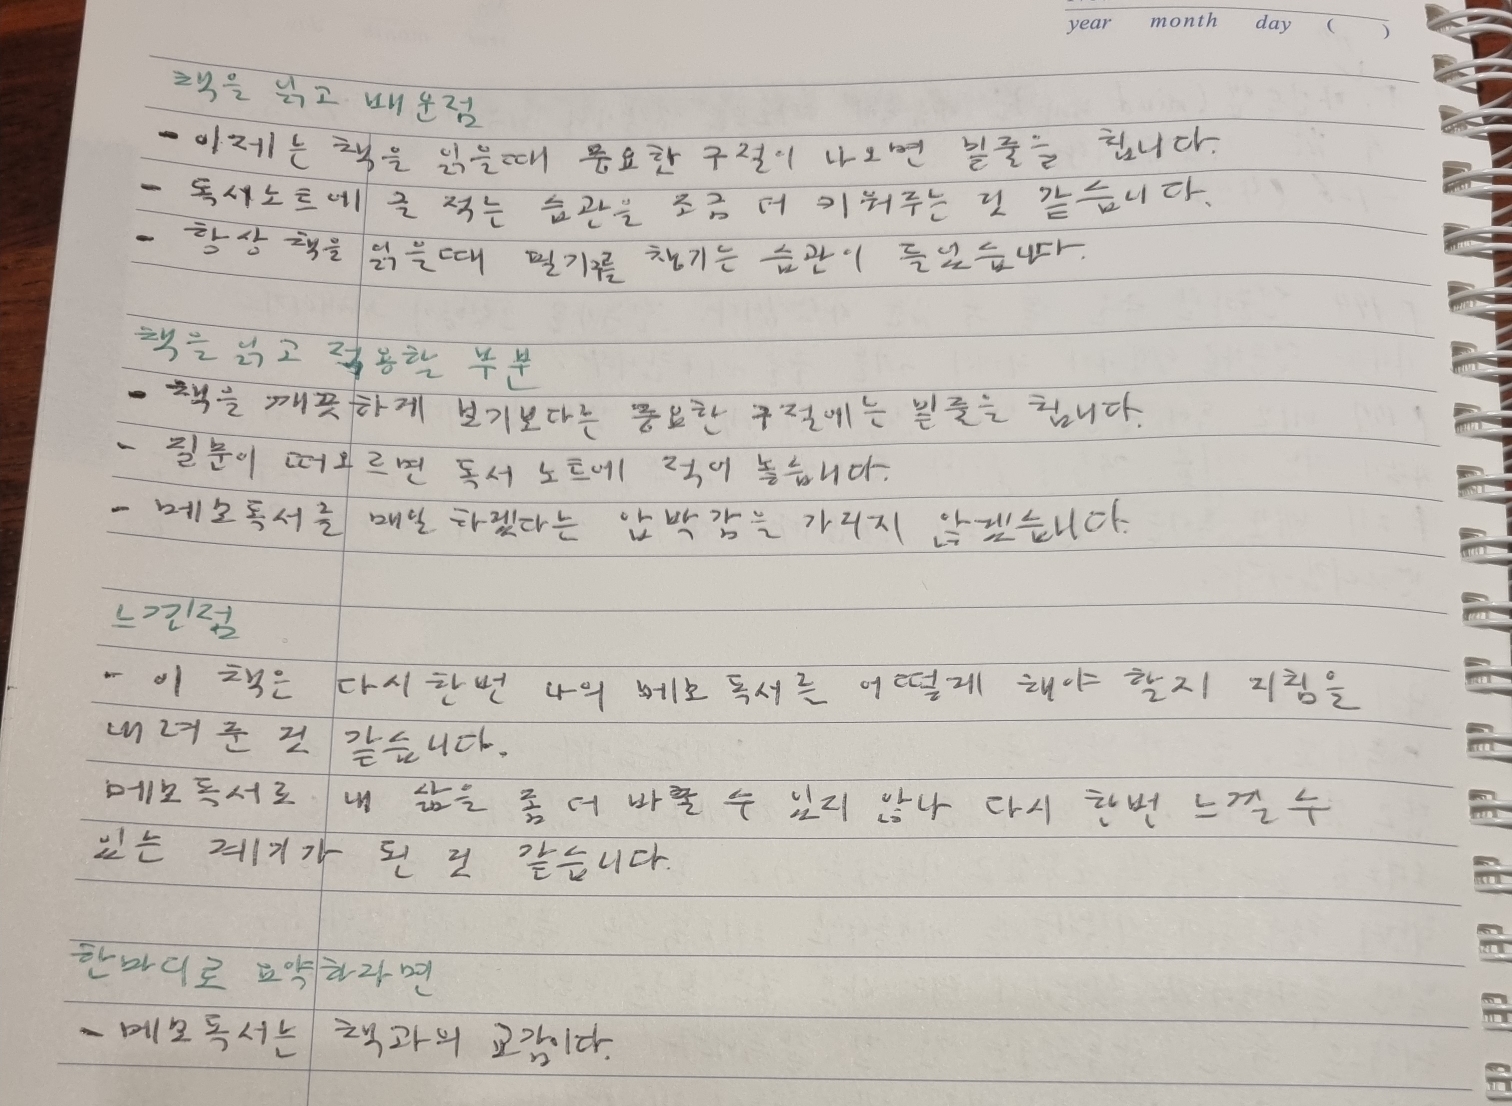 year month day ( )
책을 읽고 배운점
- 이제는 책을 읽을때 중요한 구절이 나오면 밑줄을 칩니다.
- 독서노트에 글 적는 습관을 조금 더 키워주는 것 같습니다.
- 항상 책을 읽을때 필기구를 챙기는 습관이 들었습니다.
책을 읽고 적용할 부분
- 책을 깨끗하게 보기보다는 중요한 구절에는 밑줄을 칩니다.
- 질문이 떠오르면 독서 노트에 적어 놓습니다.
- 메모독서를 매일 하겠다는 압박감을 가지지 않겠습니다.
느낀점
- 이 책은 다시한번 나의 메모 독서를 어떻게 해야 할지 지침을
내려준 것 같습니다.
메모독서로 내 삶을 좀 더 바꿀 수 있지 않나 다시 한번 느낄 수
있는 계기가 된 것 같습니다.
한마디로 요약하라면
- 메모독서는 책과의 교감이다.